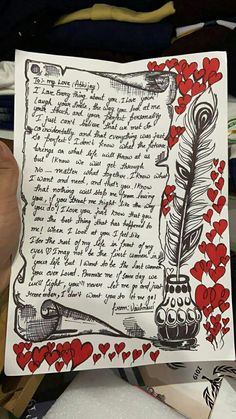 To:- my Love (Abhijay)
I Love Every thing about you. I Love your
laugh your smile, the way you look at me
your touch and your perfect personality
I just can't believe that we met
coincidentally and that everything was just
so perfect! I don't know what the future
brings or what life will throw at us
but I know we can get through
No matter what together. I know what
I want and need, and that's you. I know
that nothing will stop me from loving
you, if you treat me right like the way
you do! I love you, just know that you
are the best thing that has happened to
me! When I look at you I feel like
I see the rest of my life in front of my
eyes I may not be the first women in
your life but I want to be the last women
you ever loved. Promise me if some day we
will fight, you'll never let me go and just
remember, I don't want you to let me go!
from:-